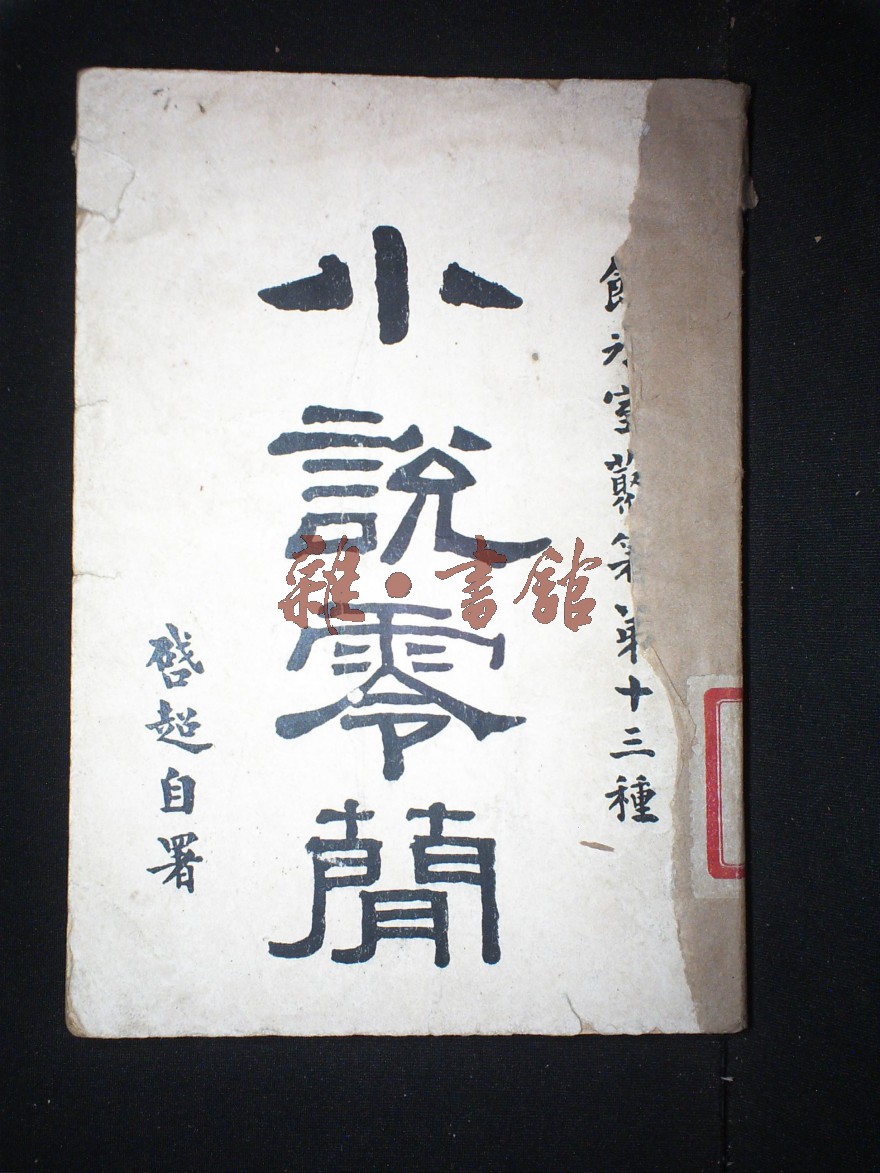 飲冰室叢著第十三種
小說零簡
啓超自署
雜·書館